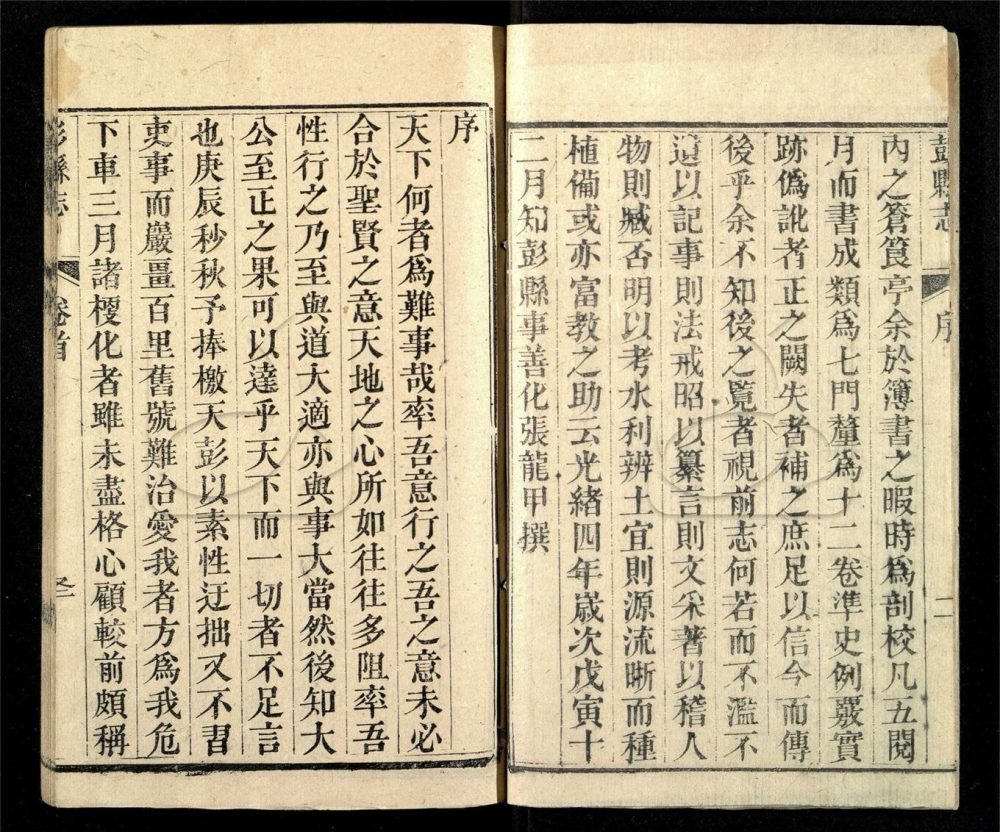 彭縣志 序 二
內之簣筤亭余於簿書之暇時為剖校凡五閱
月而書成類為七門釐為十二卷準史例覈實
跡偽訛者正之闕失者補之庶足以信今而傳
後乎余不知後之覽者視前志何若而不濫不
遺以記事則法戒昭以纂言則文采著以稽人
物則臧否明以考水利辨土宜則源流晰而種
植備或亦富教之助云光緒四年歲次戊寅十
二月知彭縣事善化張龍甲撰
序
天下何者為難事哉率吾意行之吾之意未必
合於聖賢之意天地之心所如往往多阻率吾
性行之乃至與道大適亦與事大當然後知大
公至正之果可以達乎天下而一切者不足言
也庚辰秒秋予捧檄天彭以素性迂拙又不習
吏事而嚴畺百里舊號難治愛我者方為我危
下車三月諸梗化者雖未盡格心顧較前頗稱
彭縣志 卷首